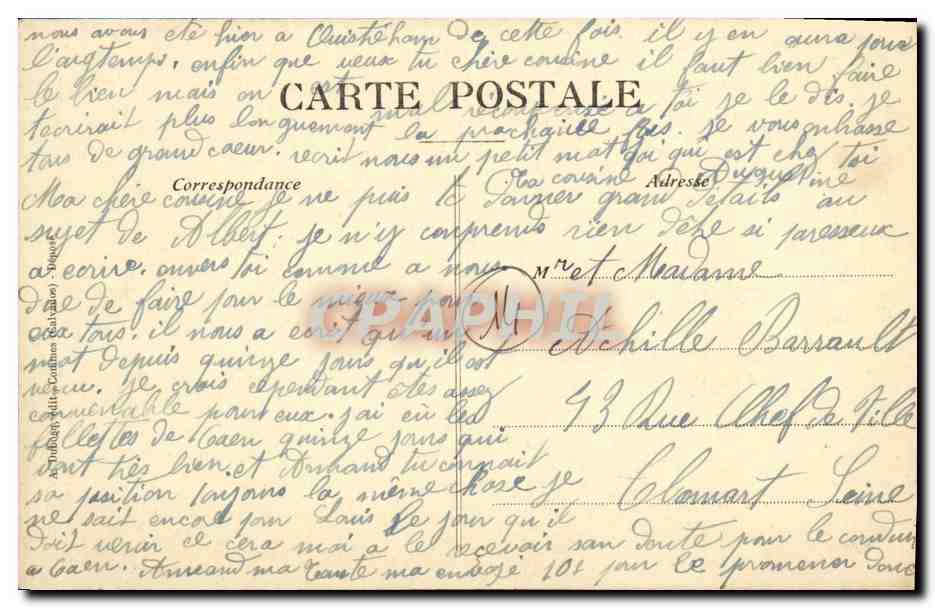 nous avons eté hier a Ouistreham de cette fois. il y en aura pour
l'augtemps. enfin que veux tu chère cousine il faut bien faire
le bien mais on est mal récompensé a toi je le dis. je
CARTE POSTALE
tecrirait plus longuement la prochaine fois. je vous embrasse
tous de grand coeur. recrit nous un petit mot qui est chez toi
Ta cousine
Correspondance
Adresse
Ma chère cousine je ne puis te donner grand détails au
sujet de Albert. je n'y comprends rien d'être si paresseux
a ecrire. envers toi comme a nous.
Mr et Madame
de faire pour le mieux pour
eux tous. il nous a ecrit qu'un
M
CRAPHIL
Achille Barrault
mot depuis quinze jours qu'il est
venu. je crois cependant etes assez
convenable pour eux. j'ai eu les
93 Rue Chef de Ville
fillettes de Caen quinze jours qui
vont très bien. et Armand tu connait
sa position toujours la même chose je
Clamart Seine
ne sait encore pour Louis le jour qu'il
doit venir ce cera moi a le recevoir san doute pour le conduire
a Caen. Armand ma tante ma envoyé 10f pour le promener donc
A. Dubosq, édit. - Commes (Calvados) - Déposé